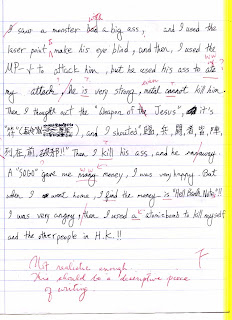 with
I saw a monster has a big ass, and I used the
laser point make his eye blind, and then, I used the
MP-5 to attack him, but he used his ass to ate
my attack, he is very strong, metal cannot kill him.
Then I thought out the "Weapon of the Jesus", it's
, and I shouted "臨, 兵, 鬥, 者, 皆, 陣,
列, 在, 前, !!" Then I kill his ass, and he runaway.
A "SOGO" gave me many money, I was very happy. But
when I went home, I find the money is "Hell Bank Notes"!!
I was very angry, then I used a atomic bomb to kill myself
and the other people in H.K.!!
Not realistic enough.
This should be a descriptive piece
of writing.
F